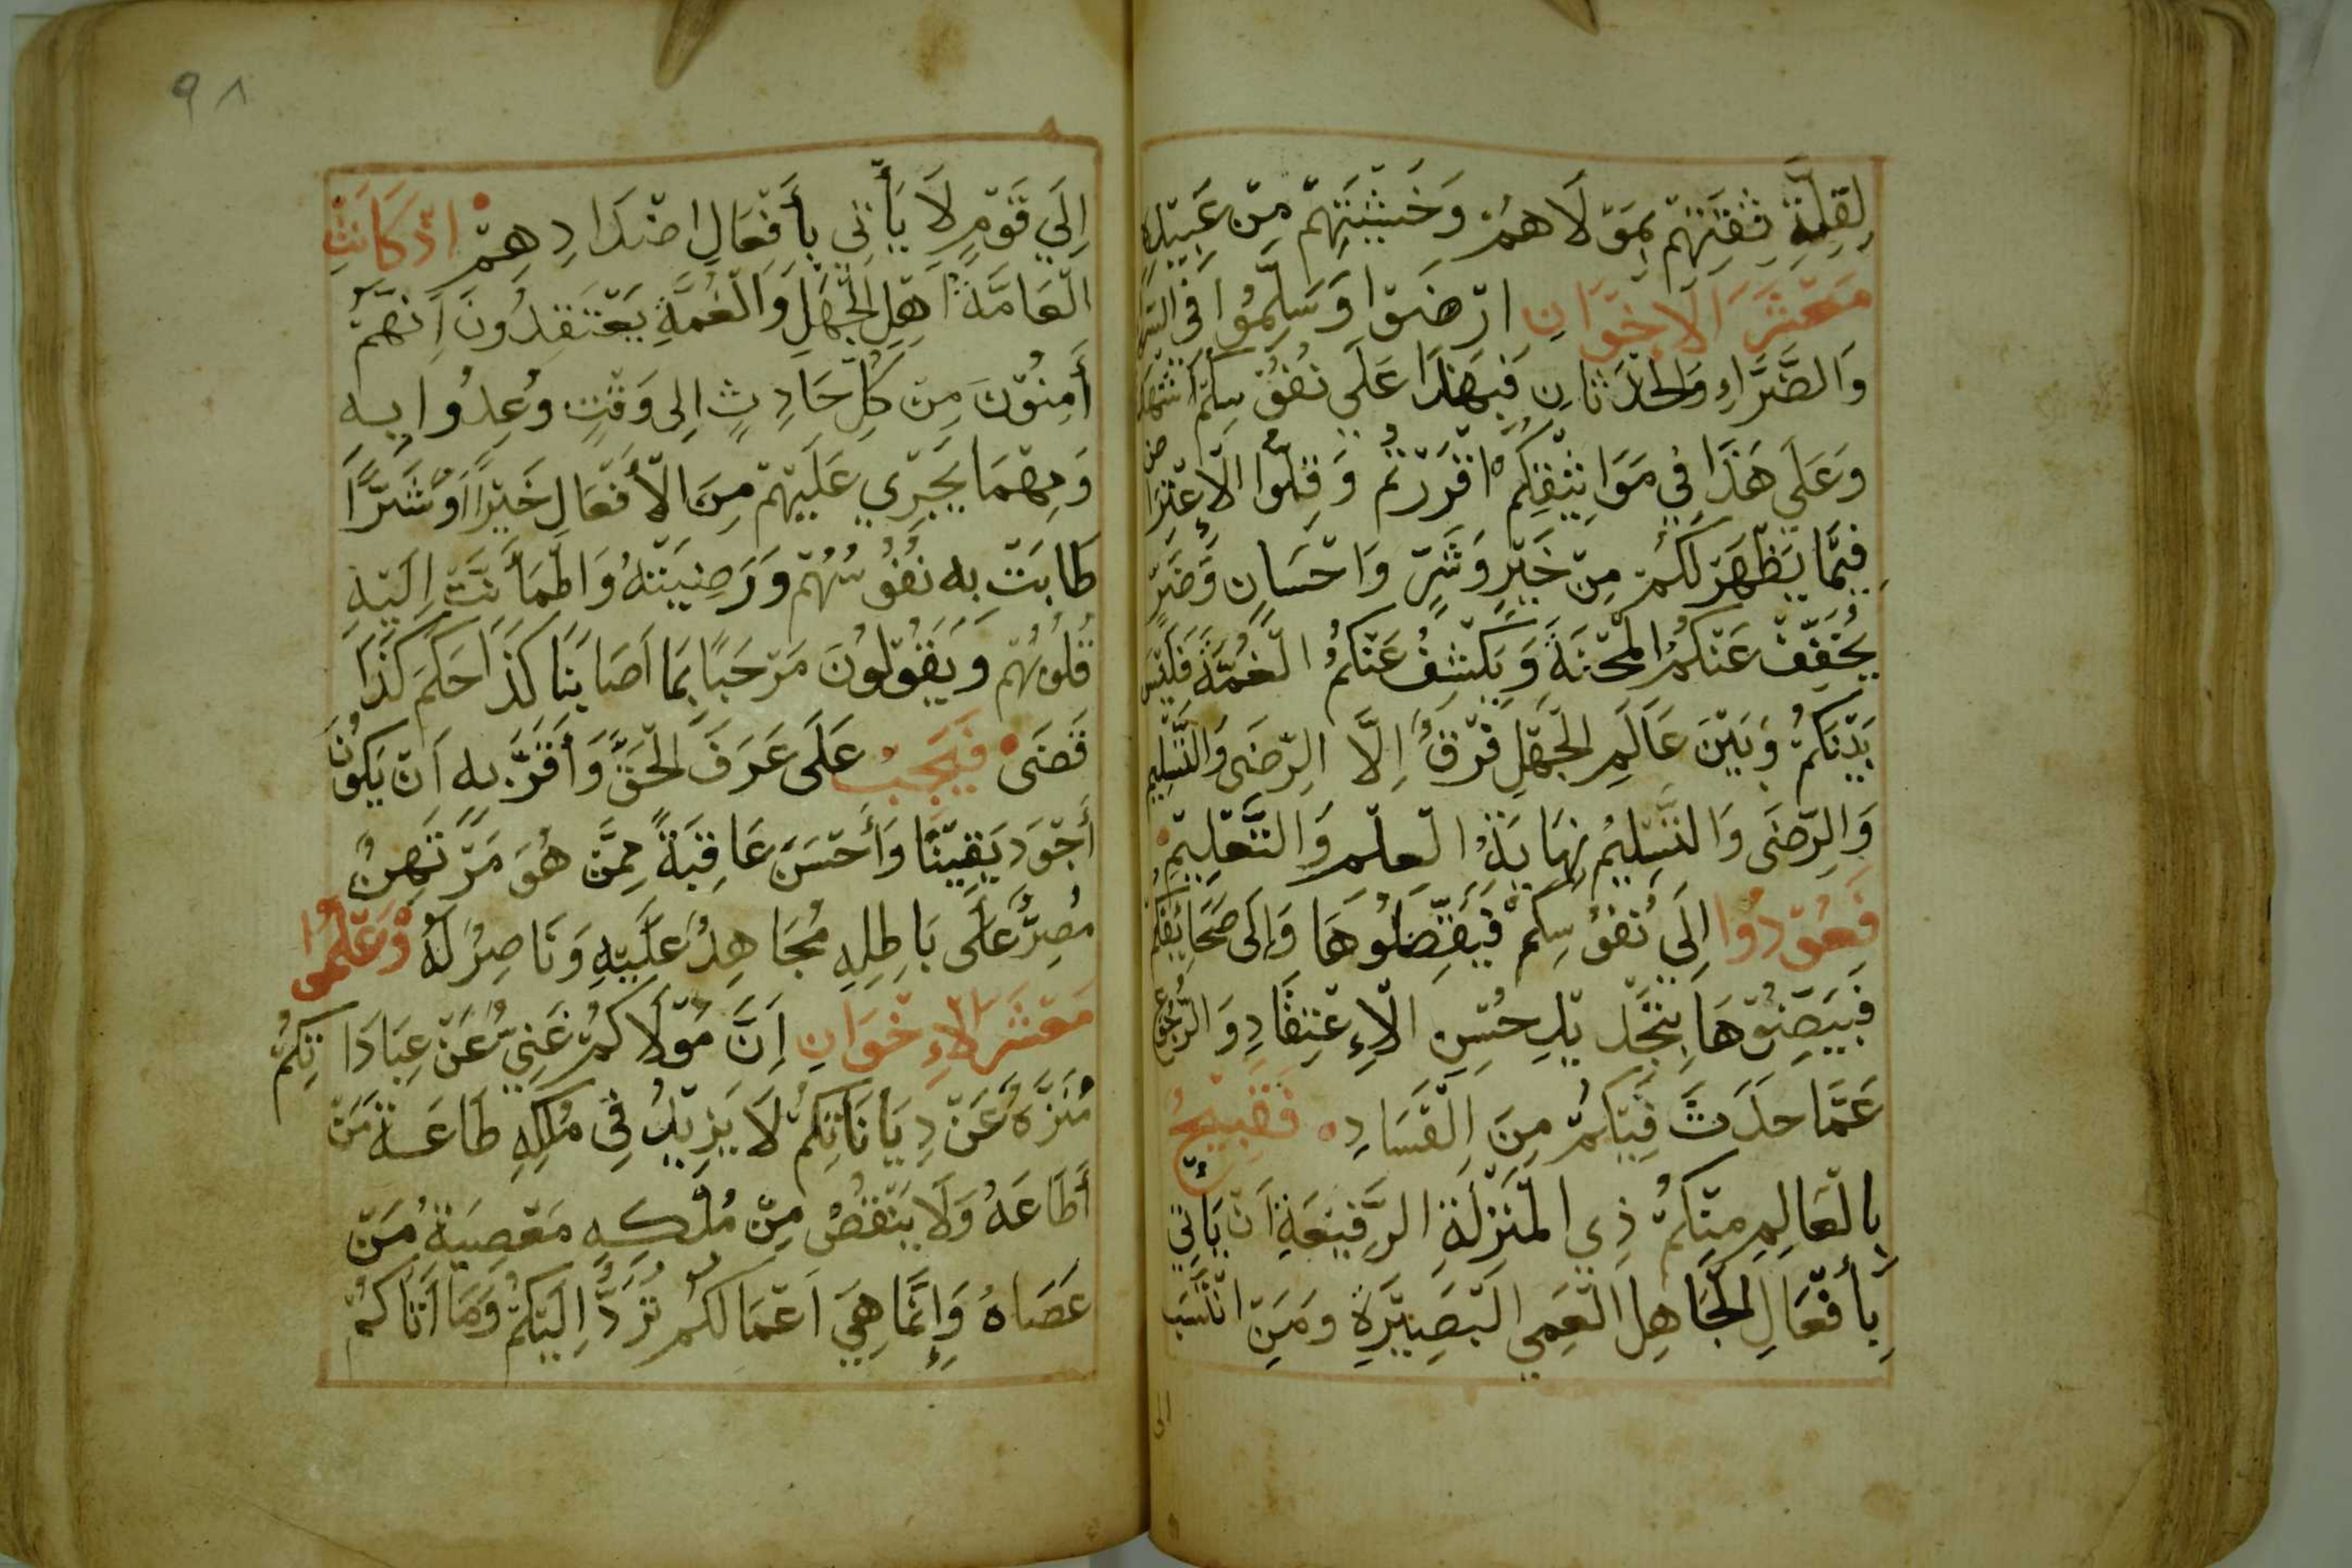 لِقِلَّةِ ثِقَتِهِمْ بِمَوْلَاهُمْ وَخَشْيَتِهِمْ مِنْ عَبِيدِهِ
مَعْشَرَ الْاِخْوَانِ ارْضَوْا وَسَلِّمُوا فِى
وَالضَّرَّاءِ وَالْحَدَثَانِ فَبِهَذَا عَلَي نُفُوْسِكُمْ اَشْهَدْ
وَعَلَي هَذَا فِي مَوَاثِيْقِكُمْ اَقْرَرْتُمْ وَقِلُّوا الْاِعْتِرَاض
فِيْمَا يَظْهَرْ لَكُمْ مِنْ خَيْرٍ وَشَرٍّ وَاحْسَانٍ وَضَرٍّ
يُخَفِّفْ عَنْكُمُ الْمِحْنَةَ وَيَكْشِفُ عَنْكُمُ الْغُمَّةَ فَلَيْسَ
بَيْنَكُمْ وَبَيْنَ عَالَمِ الْجَهْلِ فَرْقٌ اِلَّا الرِّضَى وَالتَّسْلِيم
وَالرِّضَى وَالتَّسْلِيْمُ نِهَايَةُ الْعِلْمِ وَالتَّعْلِيْمِ
فَعُوْدُوا اِلَى نُفُوْسِكُمْ فَيَقِّضُلُوْهَا وَاِلَى صَحَائِفِكُمْ
فَبَيِّضُوْهَا بِتَجْدِيْدِ حُسْنِ الْاِعْتِقَادِ وَالرُّجُوْعِ
عَمَّا حَدَثَ فِيْكُمْ مِنَ الْفَسَادِ فَقَبِيْحٌ
بِالْعَالِمِ مِنْكُمْ ذِي الْمَنْزِلَةِ الرَّفِيْعَةِ اَنْ يَاْتِي
بِأَفْعَالِ الْجَاهِلِ الْعَمِي الْبَصِيْرَةِ وَمَنِ انْتَسَبَ
الى
٩٨
اِلَي قَوْمٍ لَا يَأْتِي بِأَفْعَالِ اضْدَادِهِمْ اِذْ كَانَتْ
الْعَامَّةُ اَهْلِ الْجَهْلِ وَالْغُمَّةِ يَعْتَقِدُونَ اَنَّهُمْ
أَمِنُوْنَ مِنْ كُلِّ حَادِثٍ اِلِى وَقْتٍ وُعِدُوا بِهِ
وَمِهْمَا يَجْرِي عَلَيْهِمْ مِنَ الْأَفْعَالِ خَيْرًا اَوْ شَرًّا
طَابَتْ بِهِ نُفُوْسُهُمْ وَرَضِيَتْهُ وَاطْمَأَنَّتْ اِلَيْهِ
قُلُوْبُهُمْ وَيَقُوْلُوْنَ مَرْحَبًا بِمَا اَصَابَنَا كَذَا حَكَمَ كَذَا
قَضَى فَيَجِبُ عَلَى عَرَفَ الْحَقَّ وَأَقَرَّ بِهِ اَنْ يَكُوْنَ
أَجْوَدَ يَقِيْنًا وَأَحْسَنَ عَاقِبَةً مِمَّنْ هُوَ مَرْتَهِنٌ
مُصِرٌّ عَلَى بَاطِلِهِ مُجَاهِدُ عَلَيْهِ وَنَاصِرُ لَهُ وَعْلَمُوا
مَعْشَرَ الْاِخْوَانِ اِنَّ مَوْلَاكُمْ غَنِيٌّ عَنْ عِبَادَاتِكُمْ
مُنَزَّهٌ عَنْ دِيَانَاتِكُمْ لَا يَزِيْدُ فِى مُلْكِهِ طَاعَةُ مَنْ
أَطَاعَهُ وَلَا يَنْقُصُ مِنْ مُلْكِهِ مَعْصِيَةُ مَنْ
عَصَاهُ وَاِنَّمَا هِيَ اَعْمَالَكُمْ تُرَدُّ اِلَيْكُمْ وَمَا اَتَاكُمْ